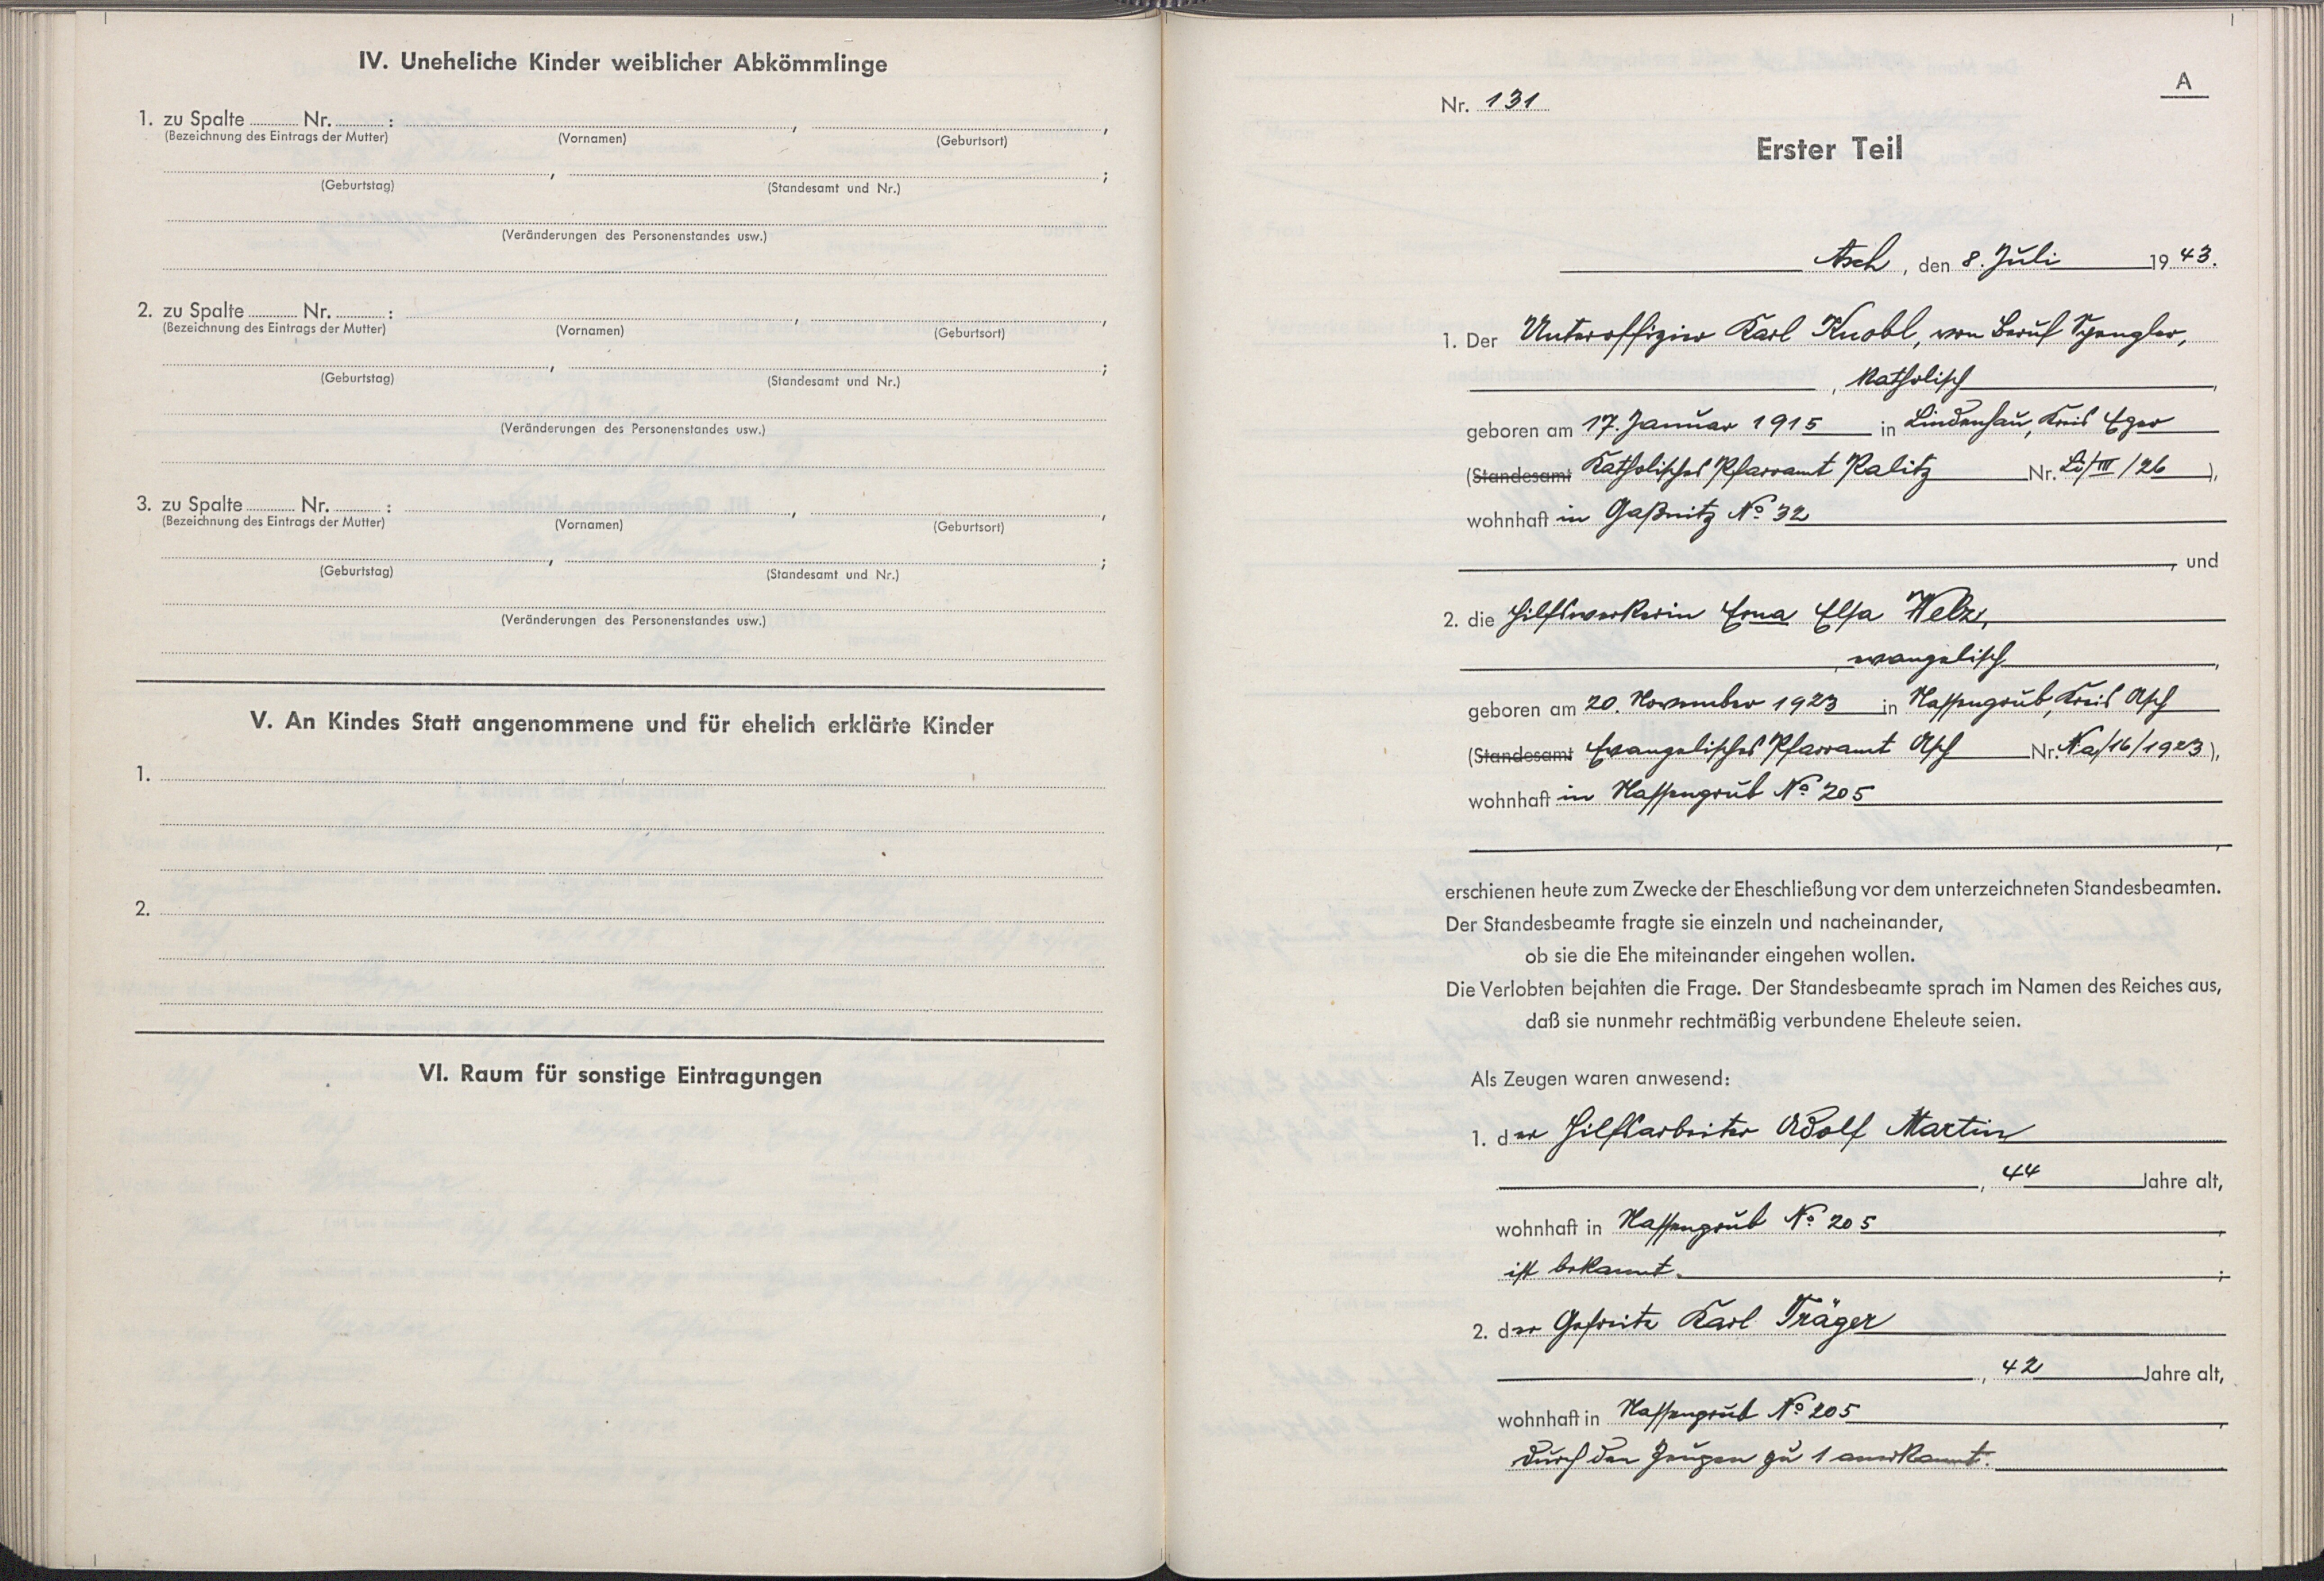 IV. Uneheliche Kinder weiblicher Abkömmlinge
1. zu Spalte ........ Nr. ........ : , ,
(Bezeichnung des Eintrags der Mutter) (Vornamen) (Geburtsort)
, ;
(Geburtstag) (Standesamt und Nr.)
(Veränderungen des Personenstandes usw.)
2. zu Spalte ........ Nr. ........ : , ,
(Bezeichnung des Eintrags der Mutter) (Vornamen) (Geburtsort)
, ;
(Geburtstag) (Standesamt und Nr.)
(Veränderungen des Personenstandes usw.)
3. zu Spalte ........ Nr. ........ : , ,
(Bezeichnung des Eintrags der Mutter) (Vornamen) (Geburtsort)
, ;
(Geburtstag) (Standesamt und Nr.)
(Veränderungen des Personenstandes usw.)
V. An Kindes Statt angenommene und für ehelich erklärte Kinder
1.
2.
VI. Raum für sonstige Eintragungen
A
Nr. 131
Erster Teil
Asch, den 8. Juli 1943.
1. Der Unteroffizier Karl Knobl, von Beruf Spengler,
, katholisch,
geboren am 17. Januar 1915 in Lindenhau, Kreis Eger
(Standesamt Katholisches Pfarramt Palitz Nr. Li/III/26),
wohnhaft in Gaßnitz No 32
, und
2. die Hilfswerkerin Erna Elsa Welz,
, evangelisch,
geboren am 20. November 1923 in Nassengrub, Kreis Asch
(Standesamt Evangelisches Pfarramt Asch Nr. Na/16/1923),
wohnhaft in Nassengrub No 205
,
erschienen heute zum Zwecke der Eheschließung vor dem unterzeichneten Standesbeamten.
Der Standesbeamte fragte sie einzeln und nacheinander,
ob sie die Ehe miteinander eingehen wollen.
Die Verlobten bejahten die Frage. Der Standesbeamte sprach im Namen des Reiches aus,
daß sie nunmehr rechtmäßig verbundene Eheleute seien.
Als Zeugen waren anwesend:
1. der Hilfsarbeiter Adolf Martin
, 44 Jahre alt,
wohnhaft in Nassengrub No 205,
ist bekannt. ;
2. der Gefreite Karl Träger
, 42 Jahre alt,
wohnhaft in Nassengrub No 205,
durch den Zeugen zu 1 anerkannt.